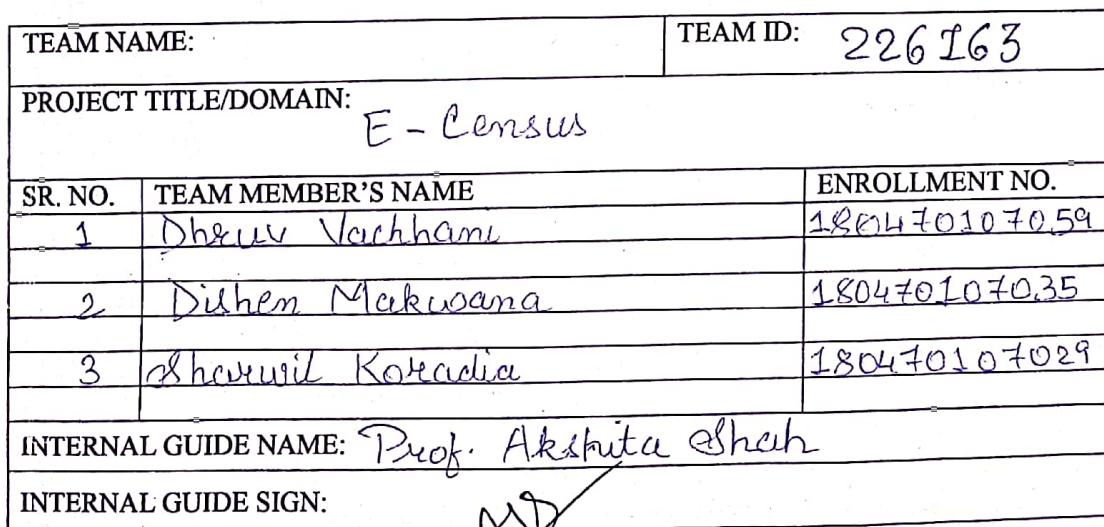 TEAM NAME: TEAM ID: 226163
PROJECT TITLE/DOMAIN:
E - Census
SR. NO. TEAM MEMBER'S NAME ENROLLMENT NO.
1 Dhruv Vachhani 180470107059
2 Dishen Makwana 180470107035
3 Sharwil Koradia 180470107029
INTERNAL GUIDE NAME: Prof. Akshita Shah
INTERNAL GUIDE SIGN: